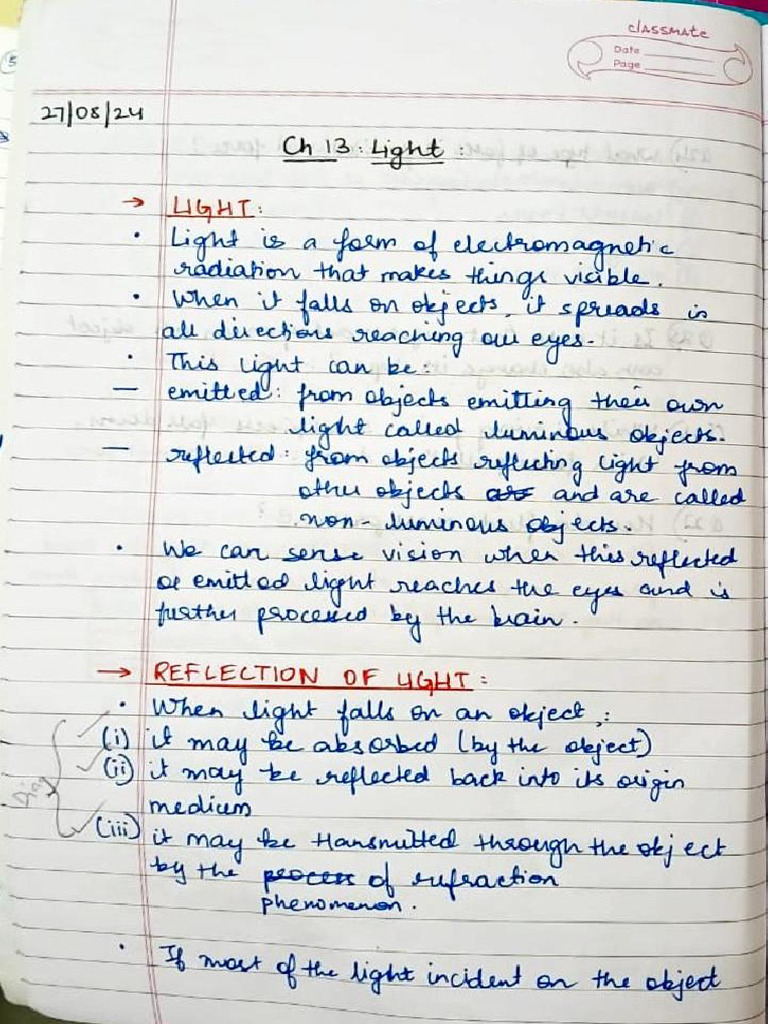 classmate
Date
Page
27/08/24
Ch 13 : Light :
→ LIGHT:
• Light is a form of electromagnetic
radiation that makes things visible.
• When it falls on objects, it spreads in
all directions reaching our eyes.
• This light can be:
— emitted: from objects emitting their own
light called luminous objects.
— reflected: from objects reflecting light from
other objects are and are called
non-luminous objects.
• We can sense vision when this reflected
or emitted light reaches the eyes and is
further processed by the brain.
→ REFLECTION OF LIGHT:
• When light falls on an object,:
(i) it may be absorbed (by the object)
(ii) it may be reflected back into its origin
medium
(iii) it may be transmitted through the object
by the process of refraction
phenomenon.
• If most of the light incident on the object